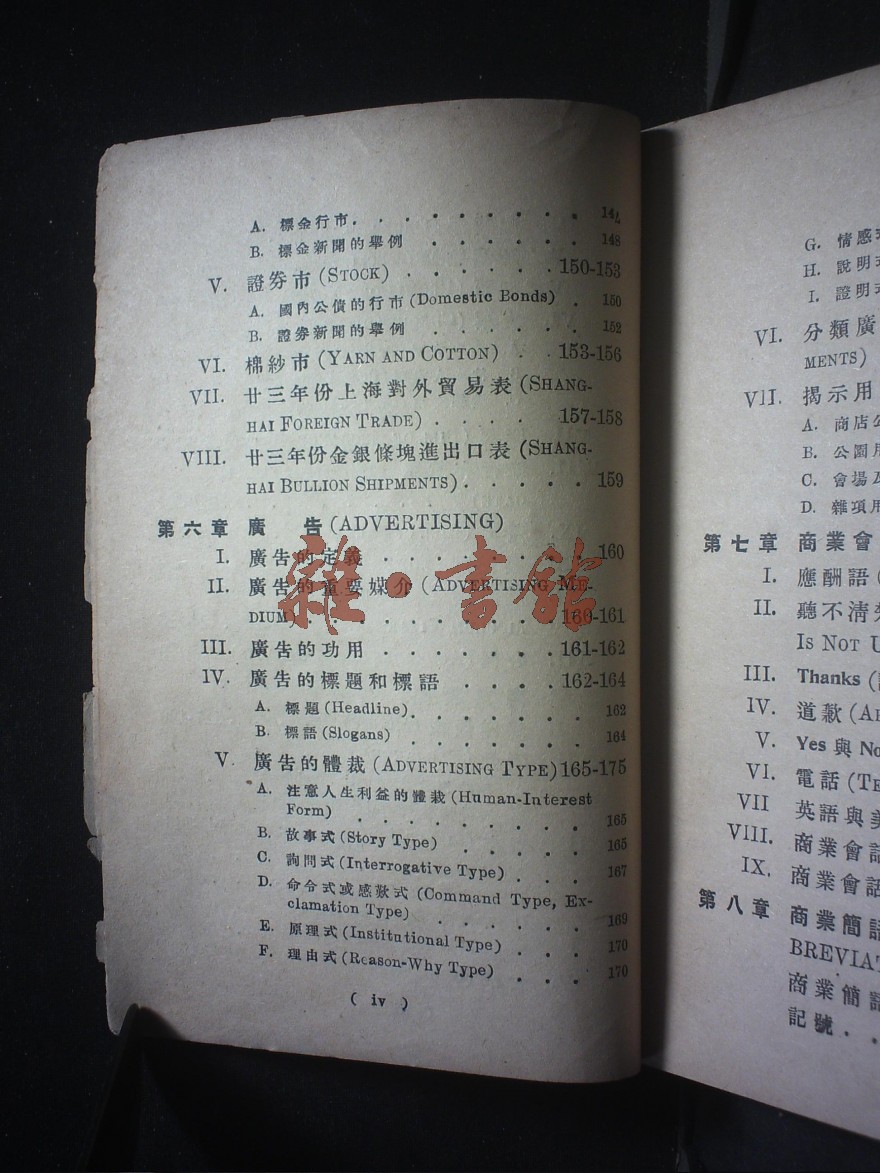 A. 標金行市. . . . . . . . . .
B. 標金新聞的舉例 . . . . . . 148
V. 證券市 (STOCK) . . . . . . 150-153
A. 國內公債的行市 (Domestic Bonds) . 150
B. 證券新聞的舉例 . . . . . . 152
VI. 棉紗市 (YARN AND COTTON) . . 153-156
VII. 廿三年份上海對外貿易表 (SHANG-
HAI FOREIGN TRADE) . . . . 157-158
VIII. 廿三年份金銀條塊進出口表 (SHANG-
HAI BULLION SHIPMENTS) . . . . . 159
第六章 廣 告 (ADVERTISING)
I. 廣告的定義 . . . . . . . . 160
II. 廣告的重要媒介 (ADVERTISING ME-
DIUM) . . . . . . . . 160-161
III. 廣告的功用 . . . . . . . 161-162
IV. 廣告的標題和標語 . . . . 162-164
A. 標題 (Headline) . . . . . . . 162
B. 標語 (Slogans) . . . . . . . 164
V. 廣告的體裁 (ADVERTISING TYPE) 165-175
A. 注意人生利益的體裁 (Human-Interest
Form) . . . . . . . . . 165
B. 故事式 (Story Type) . . . . . . 165
C. 詢問式 (Interrogative Type) . . . 167
D. 命令式或感歎式 (Command Type, Ex-
clamation Type) . . . . . . 169
E. 原理式 (Institutional Type) . . . . 170
F. 理由式 (Reason-Why Type) . . . 170
( iv )
雜·書館
G. 情感式
H. 說明式
I. 證明式
VI. 分類廣
MENTS)
VII. 揭示用
A. 商店公
B. 公園用
C. 會場及
D. 雜項用
第七章 商業會
I. 應酬語 (
II. 聽不清楚
IS NOT U
III. Thanks (
IV. 道歉 (A
V. Yes 與 No
VI. 電話 (TE
VII 英語與美
VIII. 商業會話
IX. 商業會話
第八章 商業簡語
BREVIAT
商業簡語
記號 . .